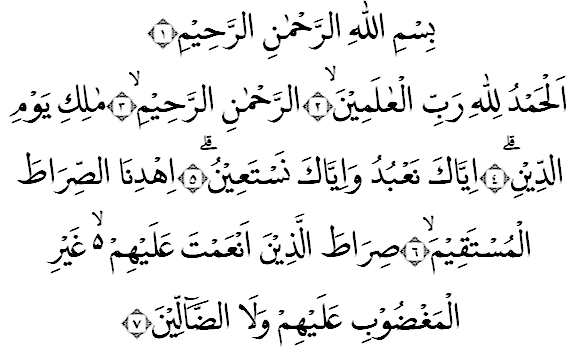 بِسْمِ اللّٰهِ الرَّحْمٰنِ الرَّحِيْمِ ۝١
اَلْحَمْدُ لِلّٰهِ رَبِّ الْعٰلَمِيْنَۙ ۝٢ الرَّحْمٰنِ الرَّحِيْمِۙ ۝٣ مٰلِكِ يَوْمِ
الدِّيْنِۗ ۝٤ اِيَّاكَ نَعْبُدُ وَاِيَّاكَ نَسْتَعِيْنُۗ ۝٥ اِهْدِنَا الصِّرَاطَ
الْمُسْتَقِيْمَۙ ۝٦ صِرَاطَ الَّذِيْنَ اَنْعَمْتَ عَلَيْهِمْ ۙ۵ غَيْرِ
الْمَغْضُوْبِ عَلَيْهِمْ وَلَا الضَّاۤلِّيْنَ ۝٧